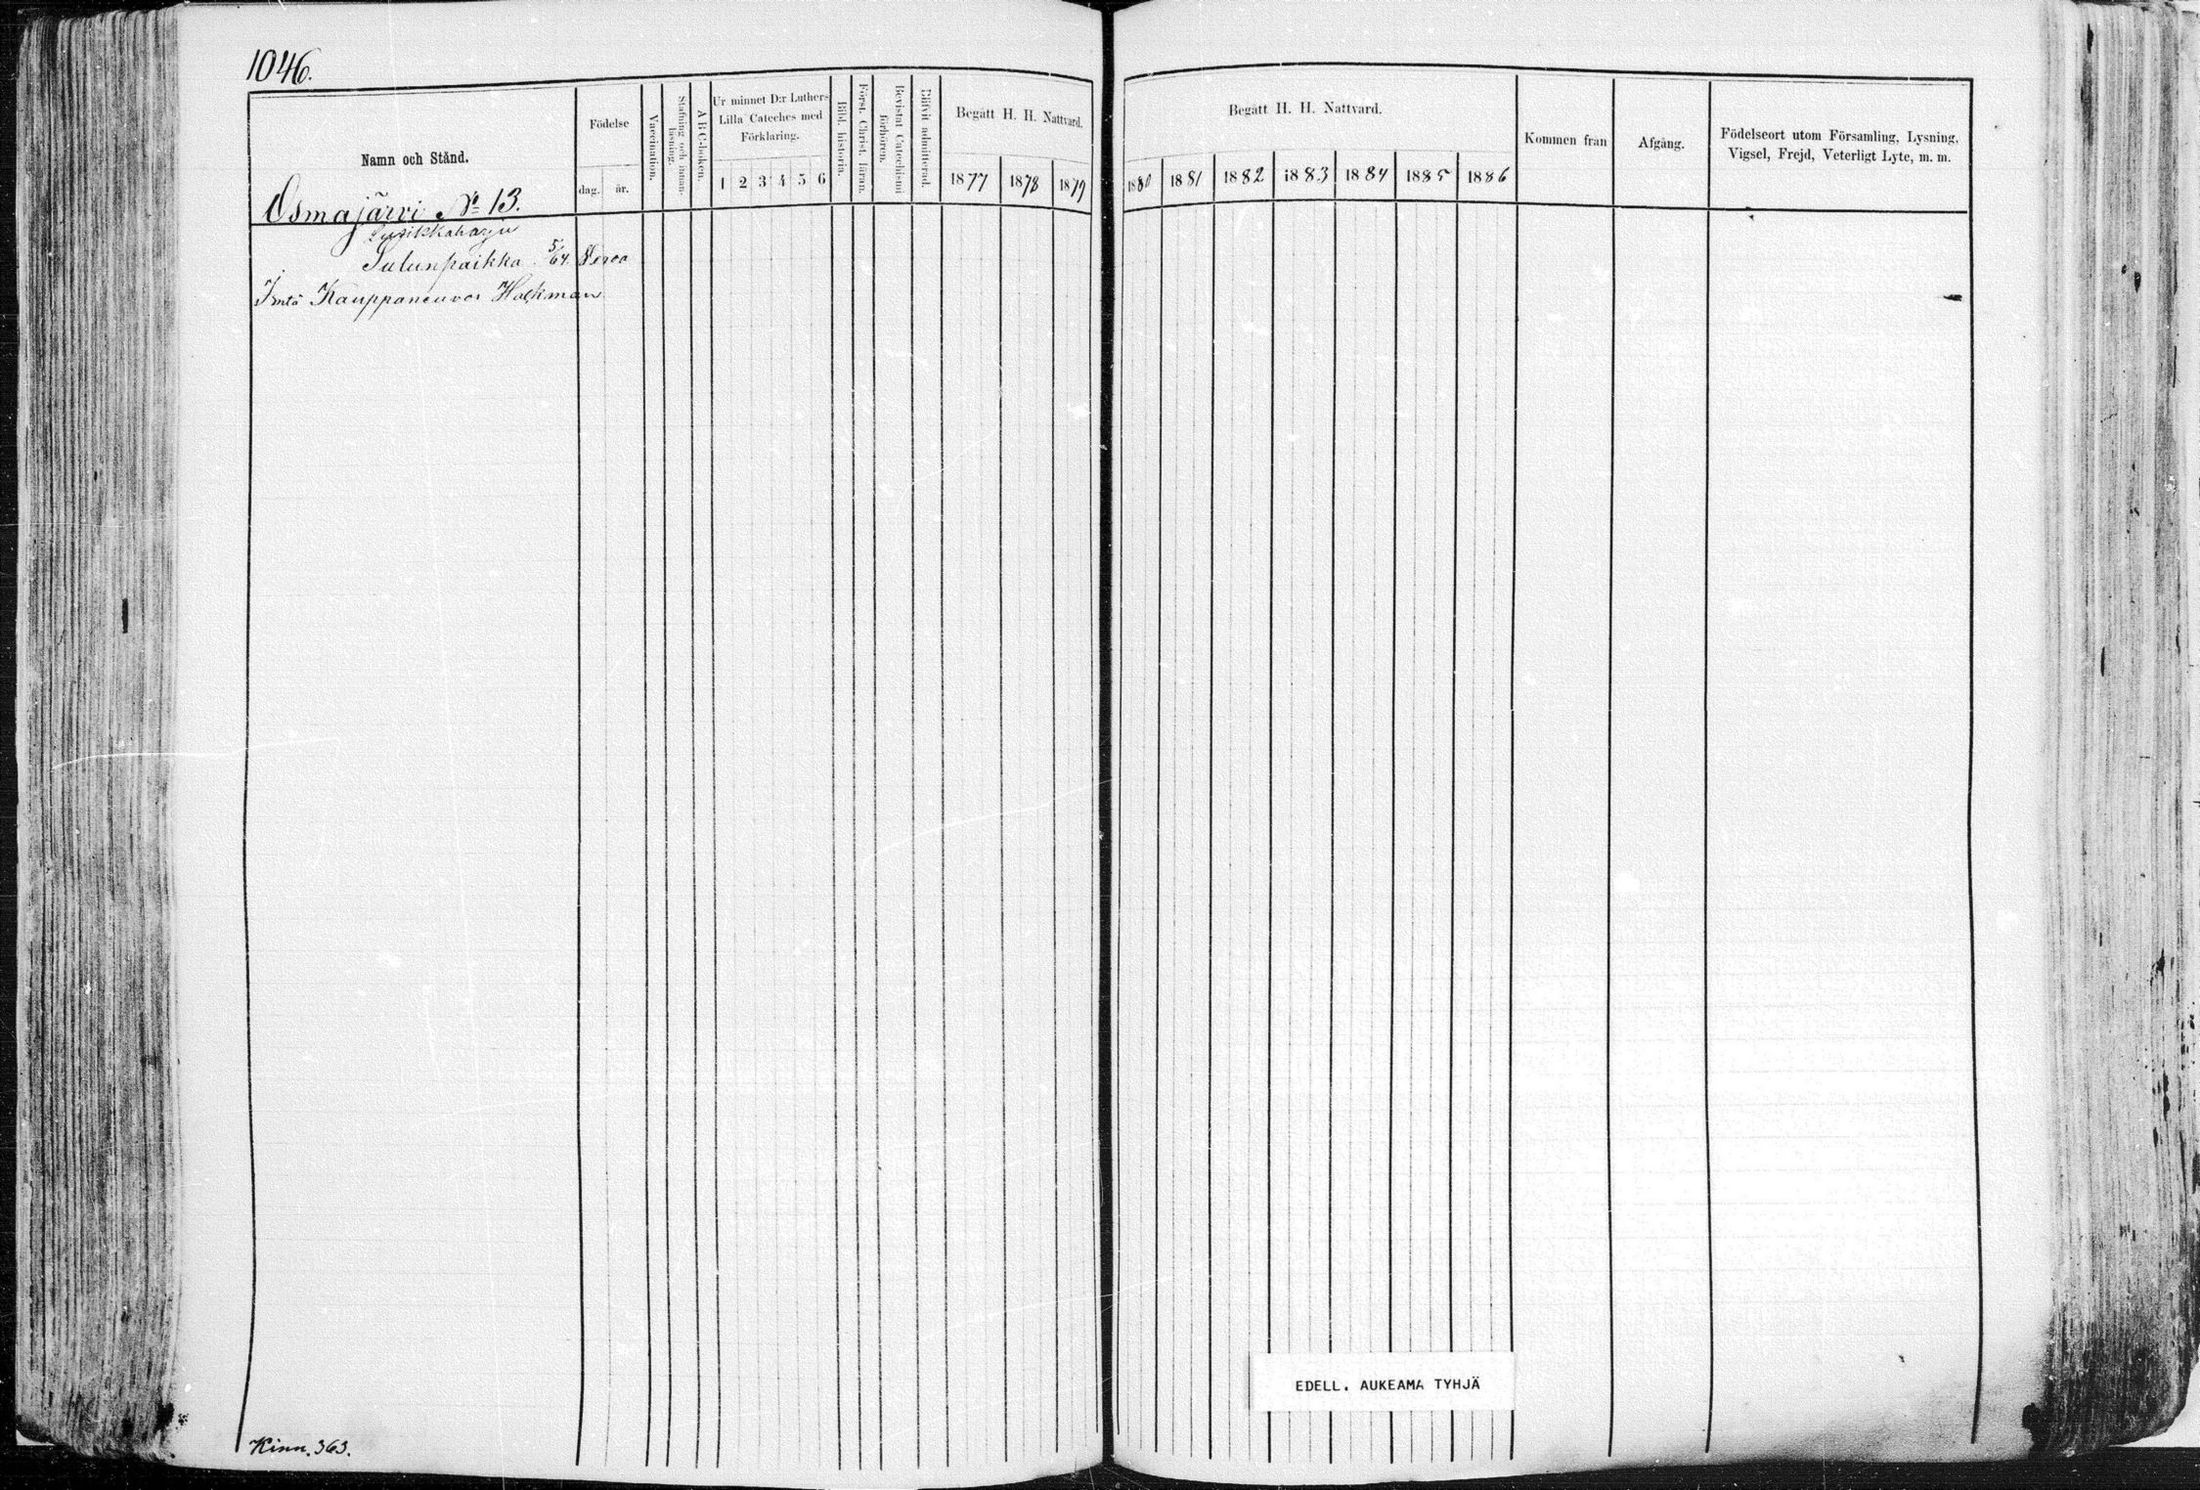 1046.
Namn och Stånd.
Födelse
dag. år.
Vaccination.
Stafning och innanläsning.
ABC-boken.
Ur minnet D:r Luthers
Lilla Cateches med
Förklaring.
1 2 3 4 5 6
Bibl. historia.
Först. Christ. läran.
Bevistat Catechismi
förhören.
Blifvit admitterad.
Begått H. H. Nattvard.
1877 1878 1879
Osmajärvi No 13.
Sulunpaikka 5/64
Kauppaneuvos Hackman
Kinn. 363.
Begått H. H. Nattvard.
1880 1881 1882 1883 1884 1885 1886
Kommen från
Afgång.
Födelseort utom Församling, Lysning,
Vigsel, Frejd, Veterligt Lyte, m. m.
EDELL. AUKEAMA TYHJÄ